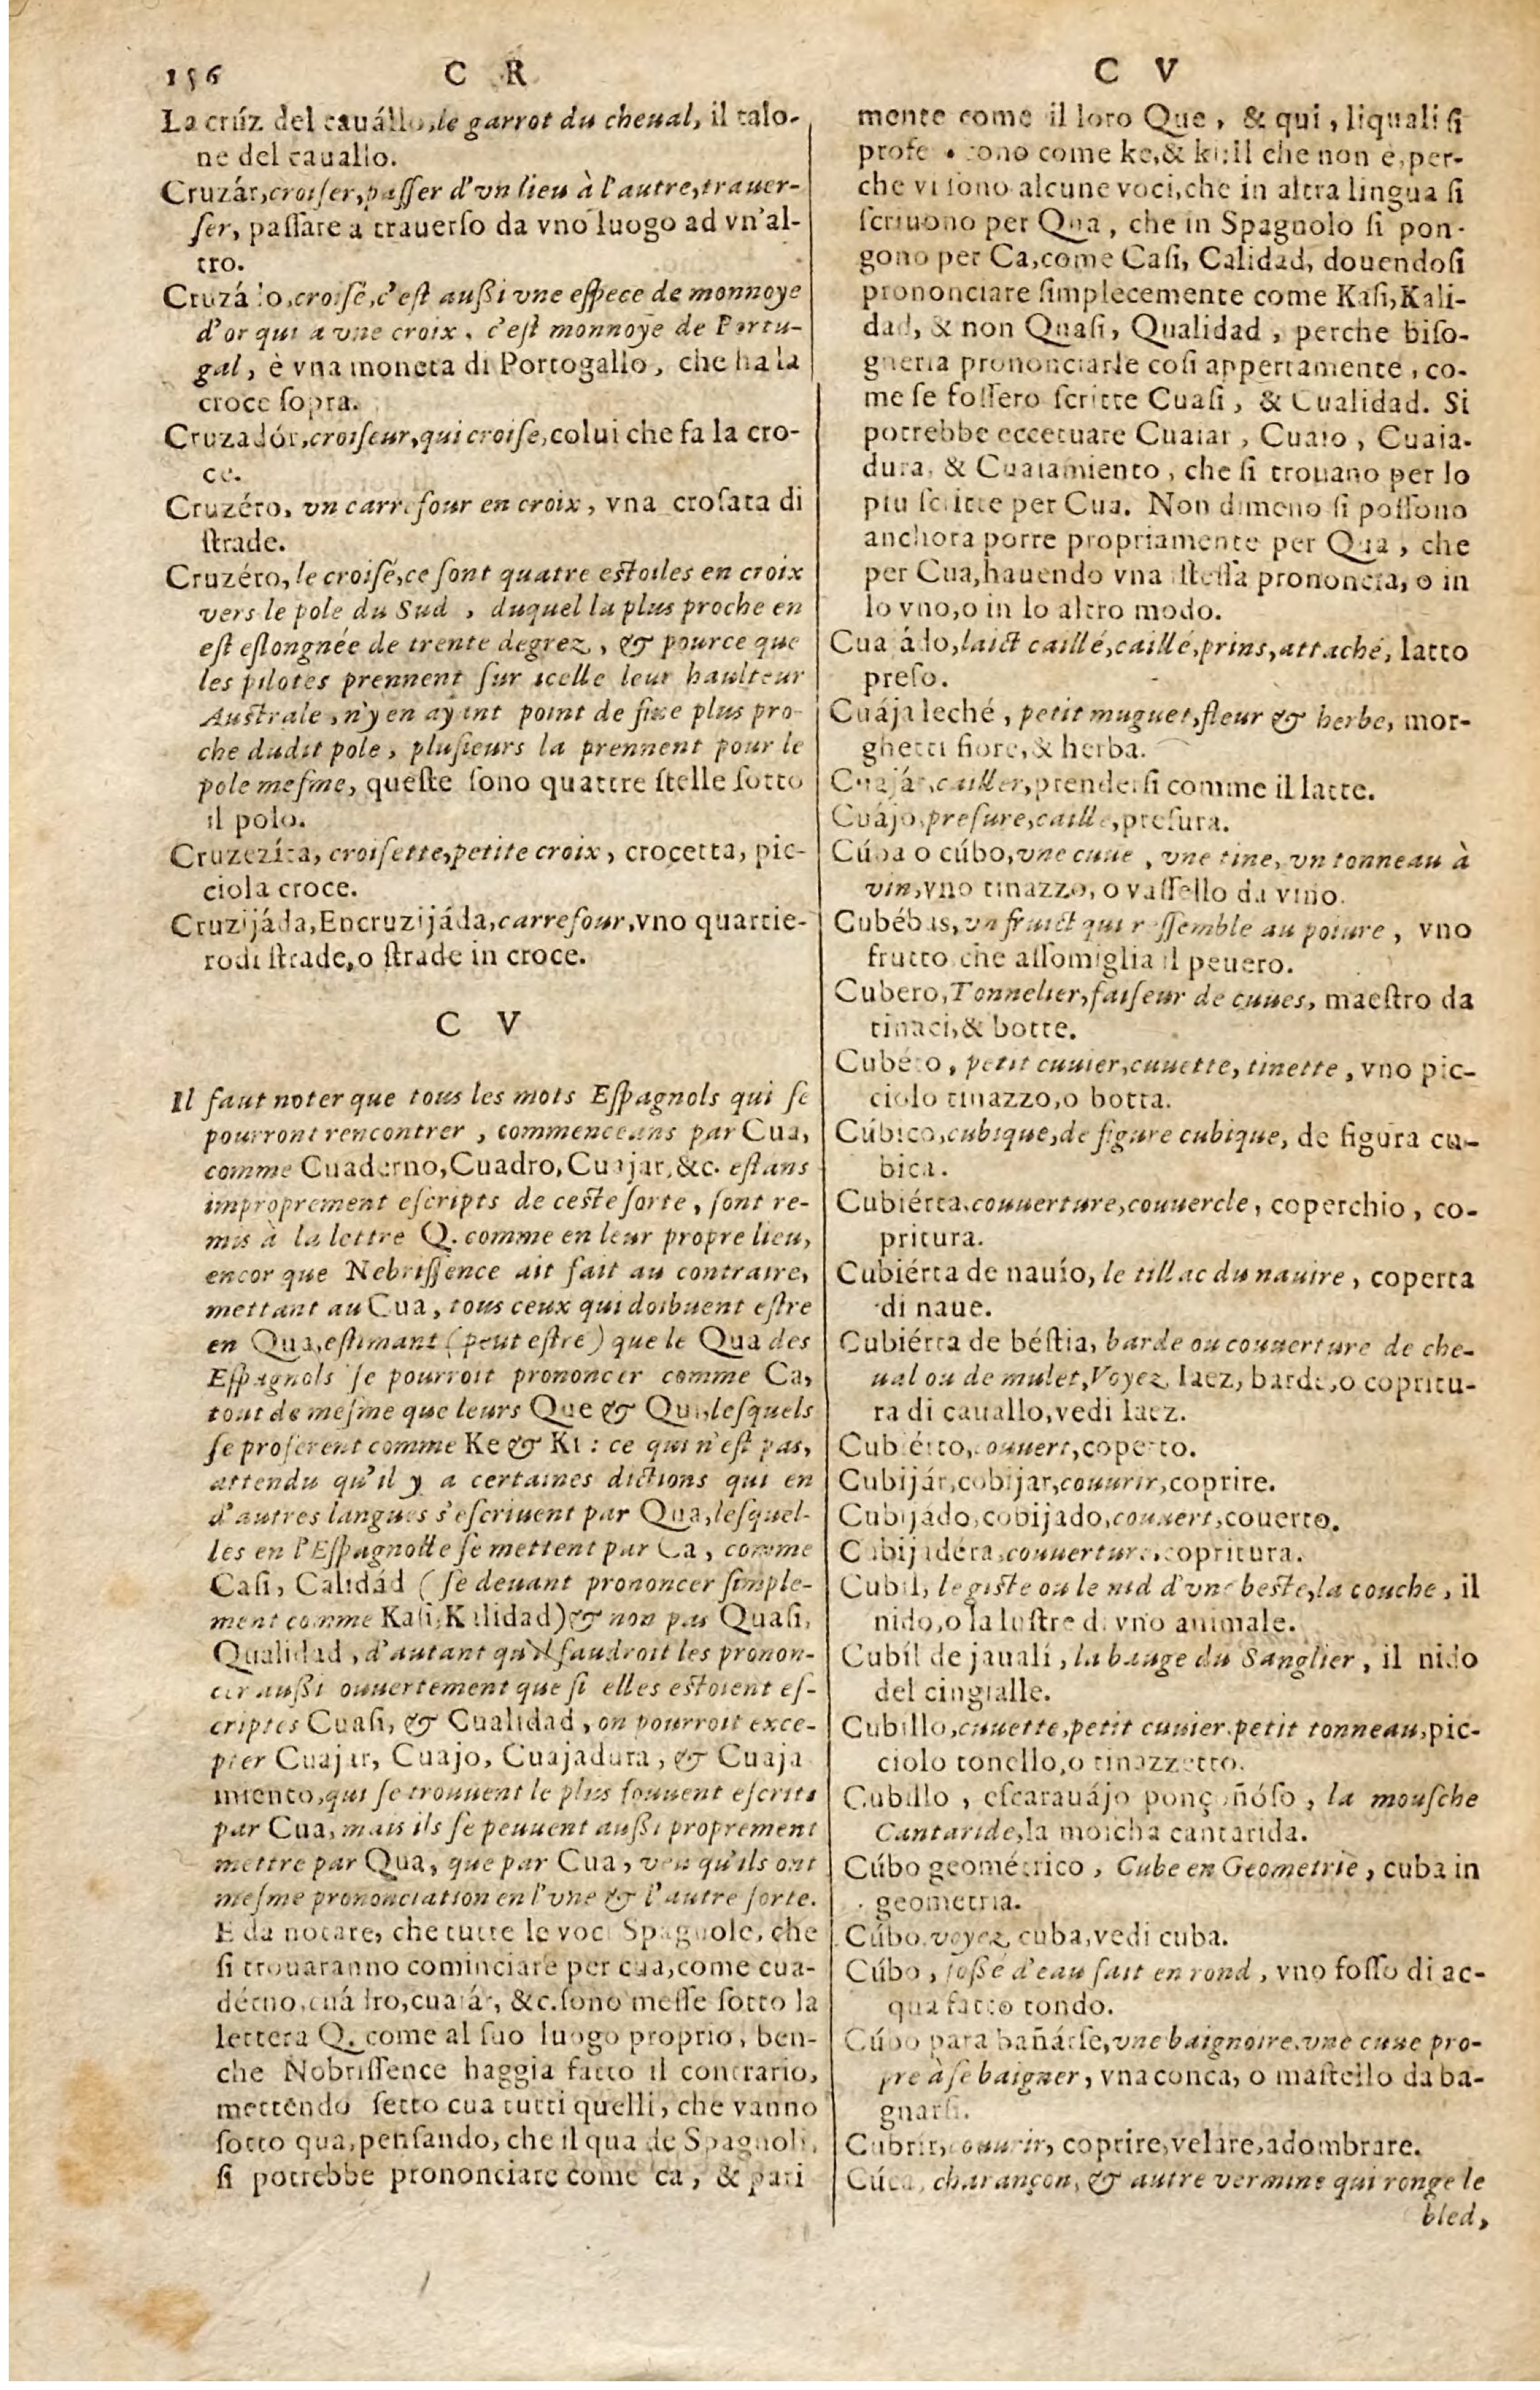 156
C R
C V
La crúz del cauállo, le garrot du cheual, il talo-
ne del cauallo.
Cruzár, croiser, passer d'vn lieu à l'autre, trauer-
ser, paſſare a trauerſo da vno luogo ad vn'al-
tro.
Cruzá o, croisé, c'eſt außi vne eſpece de monnoye
d'or qui a vne croix, c'eſt monnoye de Portu-
gal, è vna moneta di Portogallo, che ha la
croce ſopra.
Cruzadór, croiſeur, qui croiſe, colui che fa la cro-
ce.
Cruzéro, vn carrefour en croix, vna croſata di
ſtrade.
Cruzéro, le croiſé, ce ſont quatre eſtoiles en croix
vers le pole du Sud, duquel la plus proche en
eſt eſlongnée de trente degrez, & pource que
les pilotes prennent ſur icelle leur haulteur
Auſtrale, n'y en ayant point de fixe plus pro-
che dudit pole, pluſieurs la prennent pour le
pole meſme, queſte ſono quattre ſtelle ſotto
il polo.
Cruzezíta, croiſette, petite croix, crocetta, pic-
ciola croce.
Cruzijáda, Encruzijáda, carrefour, vno quartie-
ro di ſtrade, o ſtrade in croce.
C V
Il faut noter que tous les mots Eſpagnols qui ſe
pourront rencontrer, commenceans par Cua,
comme Cuaderno, Cuadro, Cuajar, &c. eſtans
improprement eſcripts de ceſte ſorte, ſont re-
mis à la lettre Q. comme en leur propre lieu,
encor que Nebriſſence ait fait au contraire,
mettant au Cua, tous ceux qui doibuent eſtre
en Qua, eſtimant (peut eſtre) que le Qua des
Eſpagnols ſe pourroit prononcer comme Ca,
tout de meſme que leurs Que & Qui, leſquels
ſe proferent comme Ke & Ki : ce qui n'eſt pas,
attendu qu'il y a certaines dictions qui en
d'autres langues s'eſcriuent par Qua, leſquel-
les en l'Eſpagnolle ſe mettent par Ca, comme
Caſi, Calidád (ſe deuant prononcer ſimple-
ment comme Kaſi, Kalidad) & non pas Quaſi,
Qualidad, d'autant qu'il faudroit les pronon-
cer außi ouuertement que ſi elles eſtoient eſ-
criptes Cuaſi, & Cualidad, on pourroit exce-
pter Cuajar, Cuajo, Cuajadura, & Cuaja
miento, qui ſe trouuent le plus ſouuent eſcrits
par Cua, mais ils ſe peuuent außi proprement
mettre par Qua, que par Cua, veu qu'ils ont
meſme prononciation en l'vne & l'autre ſorte.
E da notare, che tutte le voci Spagnole, che
ſi trouaranno cominciare per cua, come cua-
dérno, cuádro, cuaiár, &c. ſono meſſe ſotto la
lettera Q. come al ſuo luogo proprio, ben-
che Nobriſſence haggia fatto il contrario,
mettendo ſetto cua tutti quelli, che vanno
ſotto qua, penſando, che il qua de Spagnoli,
ſi potrebbe prononciare come ca, & pari
mente come il loro Que, & qui, liquali ſi
profe ono come ke, & ki: Il che non e, per-
che vi ſono alcune voci, che in altra lingua ſi
ſcriuono per Qua, che in Spagnolo ſi pon-
gono per Ca, come Caſi, Calidad, douendoſi
prononciare ſimplecemente come Kaſi, Kali-
dad, & non Quaſi, Qualidad, perche biſo-
gneria prononciarle coſi appertamente, co-
me ſe foſſero ſcritte Cuaſi, & Cualidad. Si
potrebbe eccetuare Cuaiar, Cuaio, Cuaia-
dura, & Cuaiamiento, che ſi trouano per lo
piu ſcritte per Cua. Non dimeno ſi poſſono
anchora porre propriamente per Qua, che
per Cua, hauendo vna ſteſſa prononcia, o in
lo vno, o in lo altro modo.
Cua ádo, laict caillé, caillé, prins, attaché, latto
preſo.
Cuája leché, petit muguet, fleur & herbe, mor-
ghetti fiore, & herba.
Cuajár, cailler, prenderſi comme il latte.
Cuájo, preſure, caille, preſura.
Cúba o cúbo, vne cuue, vne tine, vn tonneau à
vin, vno tinazzo, o vaſſello da vino.
Cubébas, vn fruict qui reſſemble au poiure, vno
frutto che aſſomiglia il peuero.
Cubero, Tonnelier, faiſeur de cuues, maeſtro da
tinaci, & botte.
Cubéto, petit cuuier, cuuette, tinette, vno pic-
ciolo tinazzo, o botta.
Cúbico, cubique, de figure cubique, de figura cu-
bica.
Cubiérta, couuerture, couuercle, coperchio, co-
pritura.
Cubiérta de nauío, le tillac du nauire, coperta
di naue.
Cubiérta de béſtia, barde ou couuerture de che-
ual ou de mulet, Voyez Iaez, barde, o copritu-
ra di cauallo, vedi Iaez.
Cubiérto, couuert, coperto.
Cubijár, cobijar, couurir, coprire.
Cubijádo, cobijado, couuert, couerto.
Cubijadéra, couuerture, copritura.
Cubil, le giſte ou le nid d'vne beſte, la couche, il
nido, o la luſtre di vno animale.
Cubíl de jauali, la bauge du Sanglier, il nido
del cingialle.
Cubillo, cuuette, petit cuuier, petit tonneau, pic-
ciolo tonello, o tinazzetto.
Cubillo, eſcarauájo ponçoñóſo, la mouſche
Cantaride, la moſcha cantarida.
Cúbo geométrico, Cube en Geometrie, cuba in
geometria.
Cúbo, voyez cuba, vedi cuba.
Cúbo, foſſé d'eau fait en rond, vno foſſo di ac-
qua fatto tondo.
Cúbo para bañárſe, vne baignoire, vne cuue pro-
pre à ſe baigner, vna conca, o maſtello da ba-
gnarſi.
Cubrir, couurir, coprire, velare, adombrare.
Cúca, charançon, & autre vermine qui ronge le
bled,